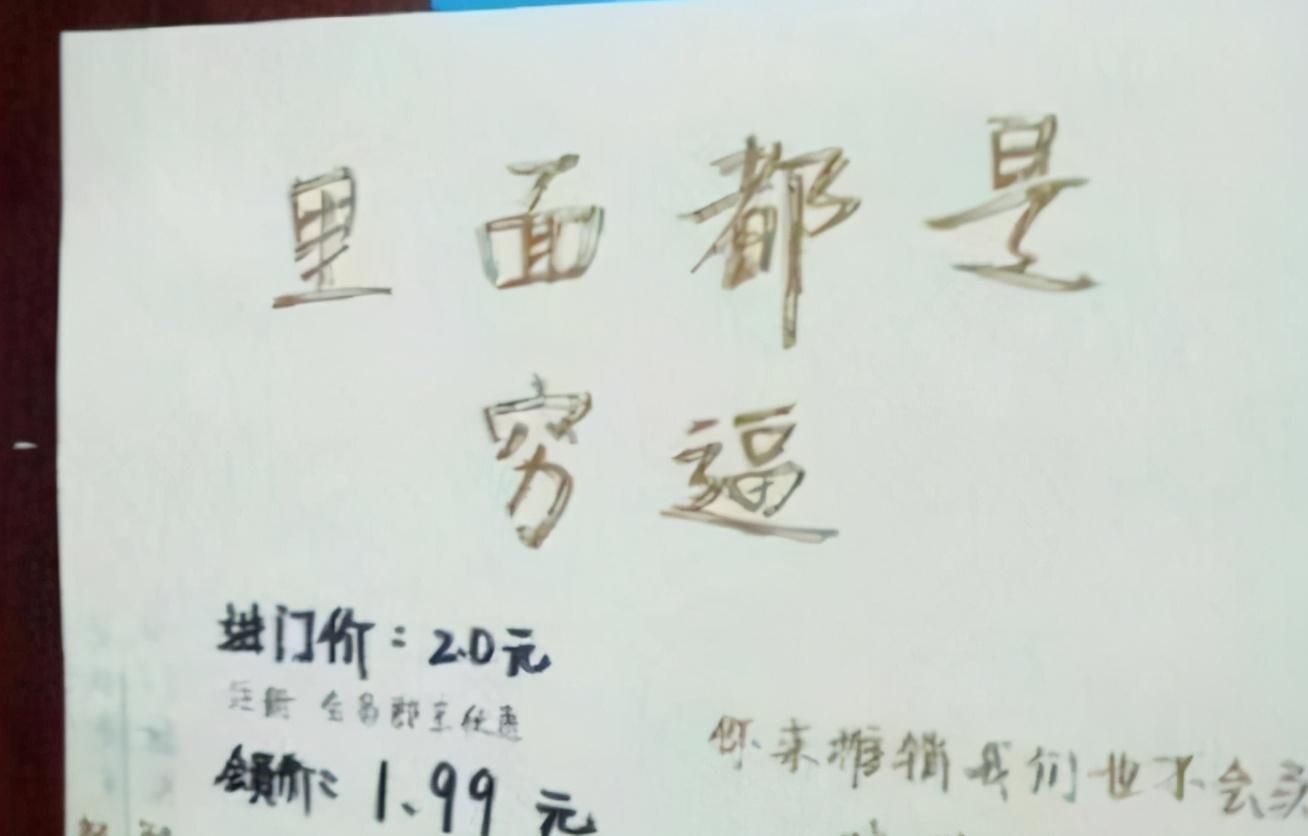 里面都是
穷逼
进门价：2.0元
注册 会员即享优惠
会員价：1.99元
你来推销我们也不会买